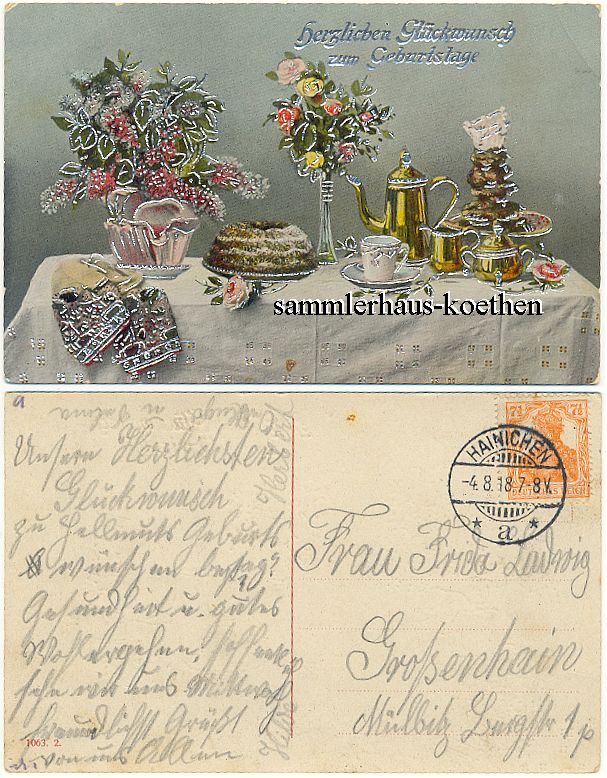 Herzlichen Glückwunsch
zum Geburtstage
sammlerhaus-koethen
a
Unsern Herzlichsten
Glückwunsch
zu Hellmuts Geburts
wünschen
Gesundheit u. gutes
Wohlergehen,
wir uns
Grüßt
von uns
1063. 2.
HAINICHEN
-4.8.18.7-8V.
* a *
7½ 7½
DEUTSCHES REICH
Frau Frida Ludwig
Großenhain
Mülbitz Bergstr 1p